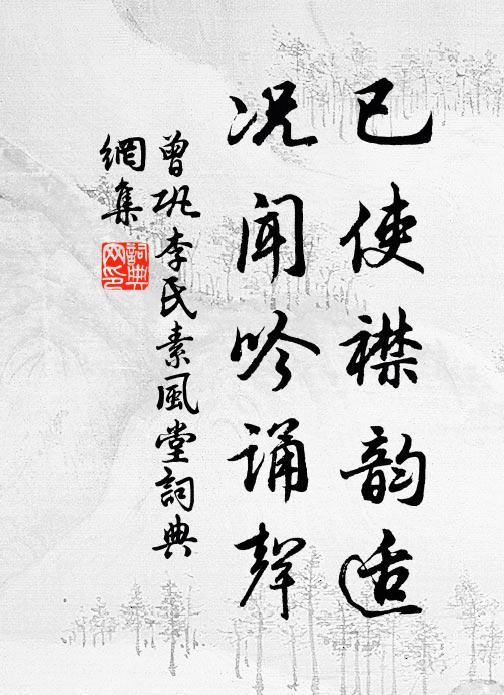 已使襟韵适
况闻吟诵聲
曾巩李氏素風堂詞典
網集
詞典
网印